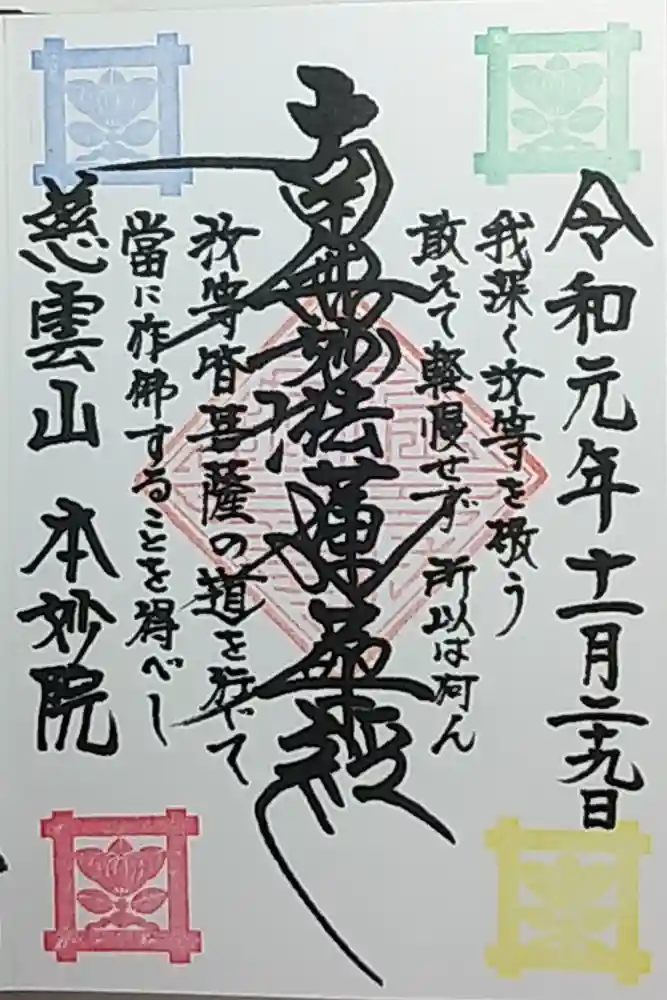 令和元年十一月二十九日
我深く汝等を敬う
敢えて軽慢せず 所以は何ん
南無妙法蓮華経
汝等皆菩薩の道を行じて
當に作佛することを得べし
慈雲山 本妙院